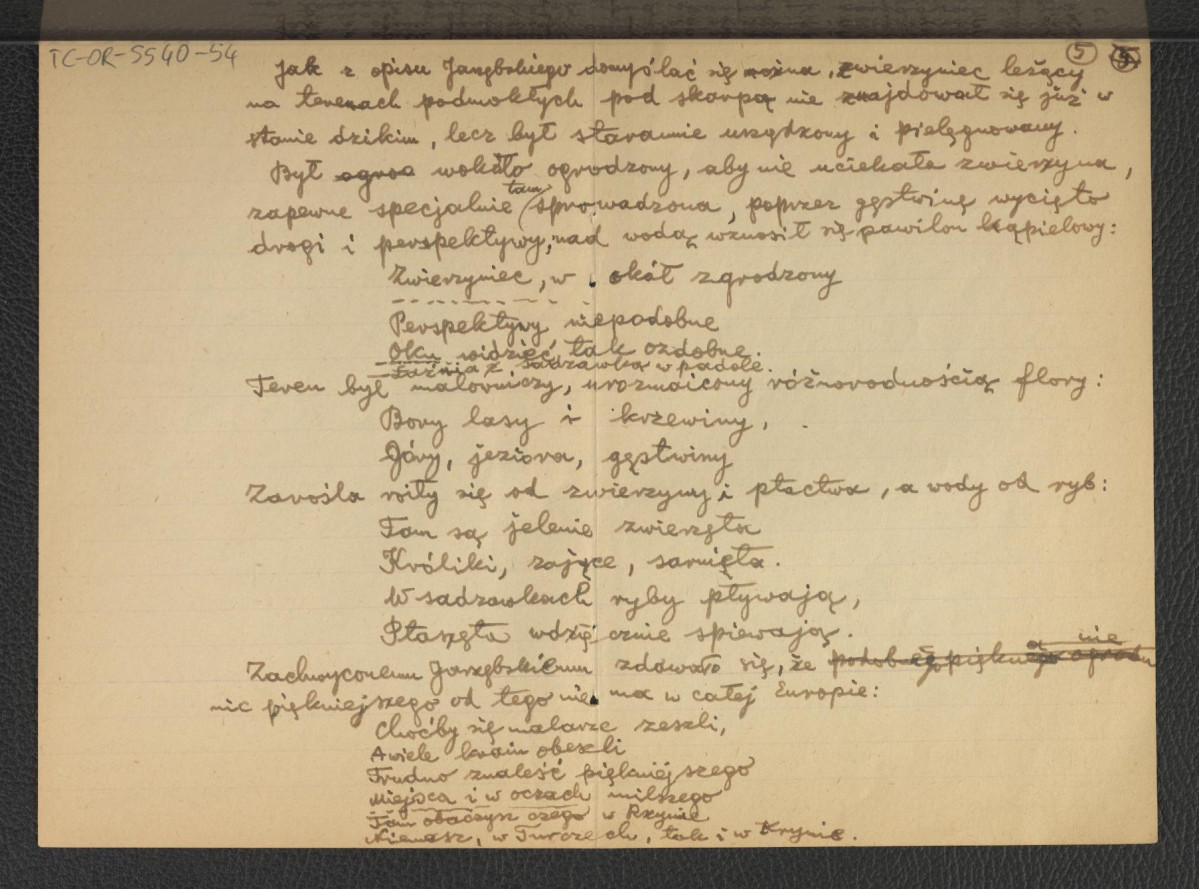 TC-OR-5540-54
5
Jak z opisu Jarzębskiego domyślać się można, zwierzyniec leżący
na terenach podmokłych pod skarpą nie znajdował się już w
stanie dzikim, lecz był starannie urządzony i pielęgnowany.
Był ogroo wokóło ogrodzony, aby nie uciekała zwierzyna,
tam
zapewne specjalnie sprowadzona, poprzez gęstwinę wycięto
drogi i perspektywy, nad wodą wznosił się pawilon kąpielowy:
Zwierzyniec, w okół zgrodzony
Perspektywy niepodobne
Oku widzieć, tak ozdobne.
Łaźnia z sadzawką w padole.
Teren był malowniczy, urozmaicony różnorodnością flory:
Bory lasy i krzewiny,
Góry, jeziora, gęstwiny
Zarośla roiły się od zwierzyny i ptactwa, a wody od ryb:
Tam są jelenie zwierzęta
Króliki, zające, sarnięta.
W sadzawkach ryby pływają,
Ptaszęta wdzięcznie spiewają.
Zachwyconemu Jarzębskiemu zdawało się, że
nic piękniejszego od tego nie ma w całej Europie:
Choćby się malarze zeszli,
A wiele krain obeszli
Trudno znaleść piękniejszego
Miejsca i w oczach milszego
Tam obaczysz czego w Rzymie
Niemasz, w Turczech, tak i w Krymie.